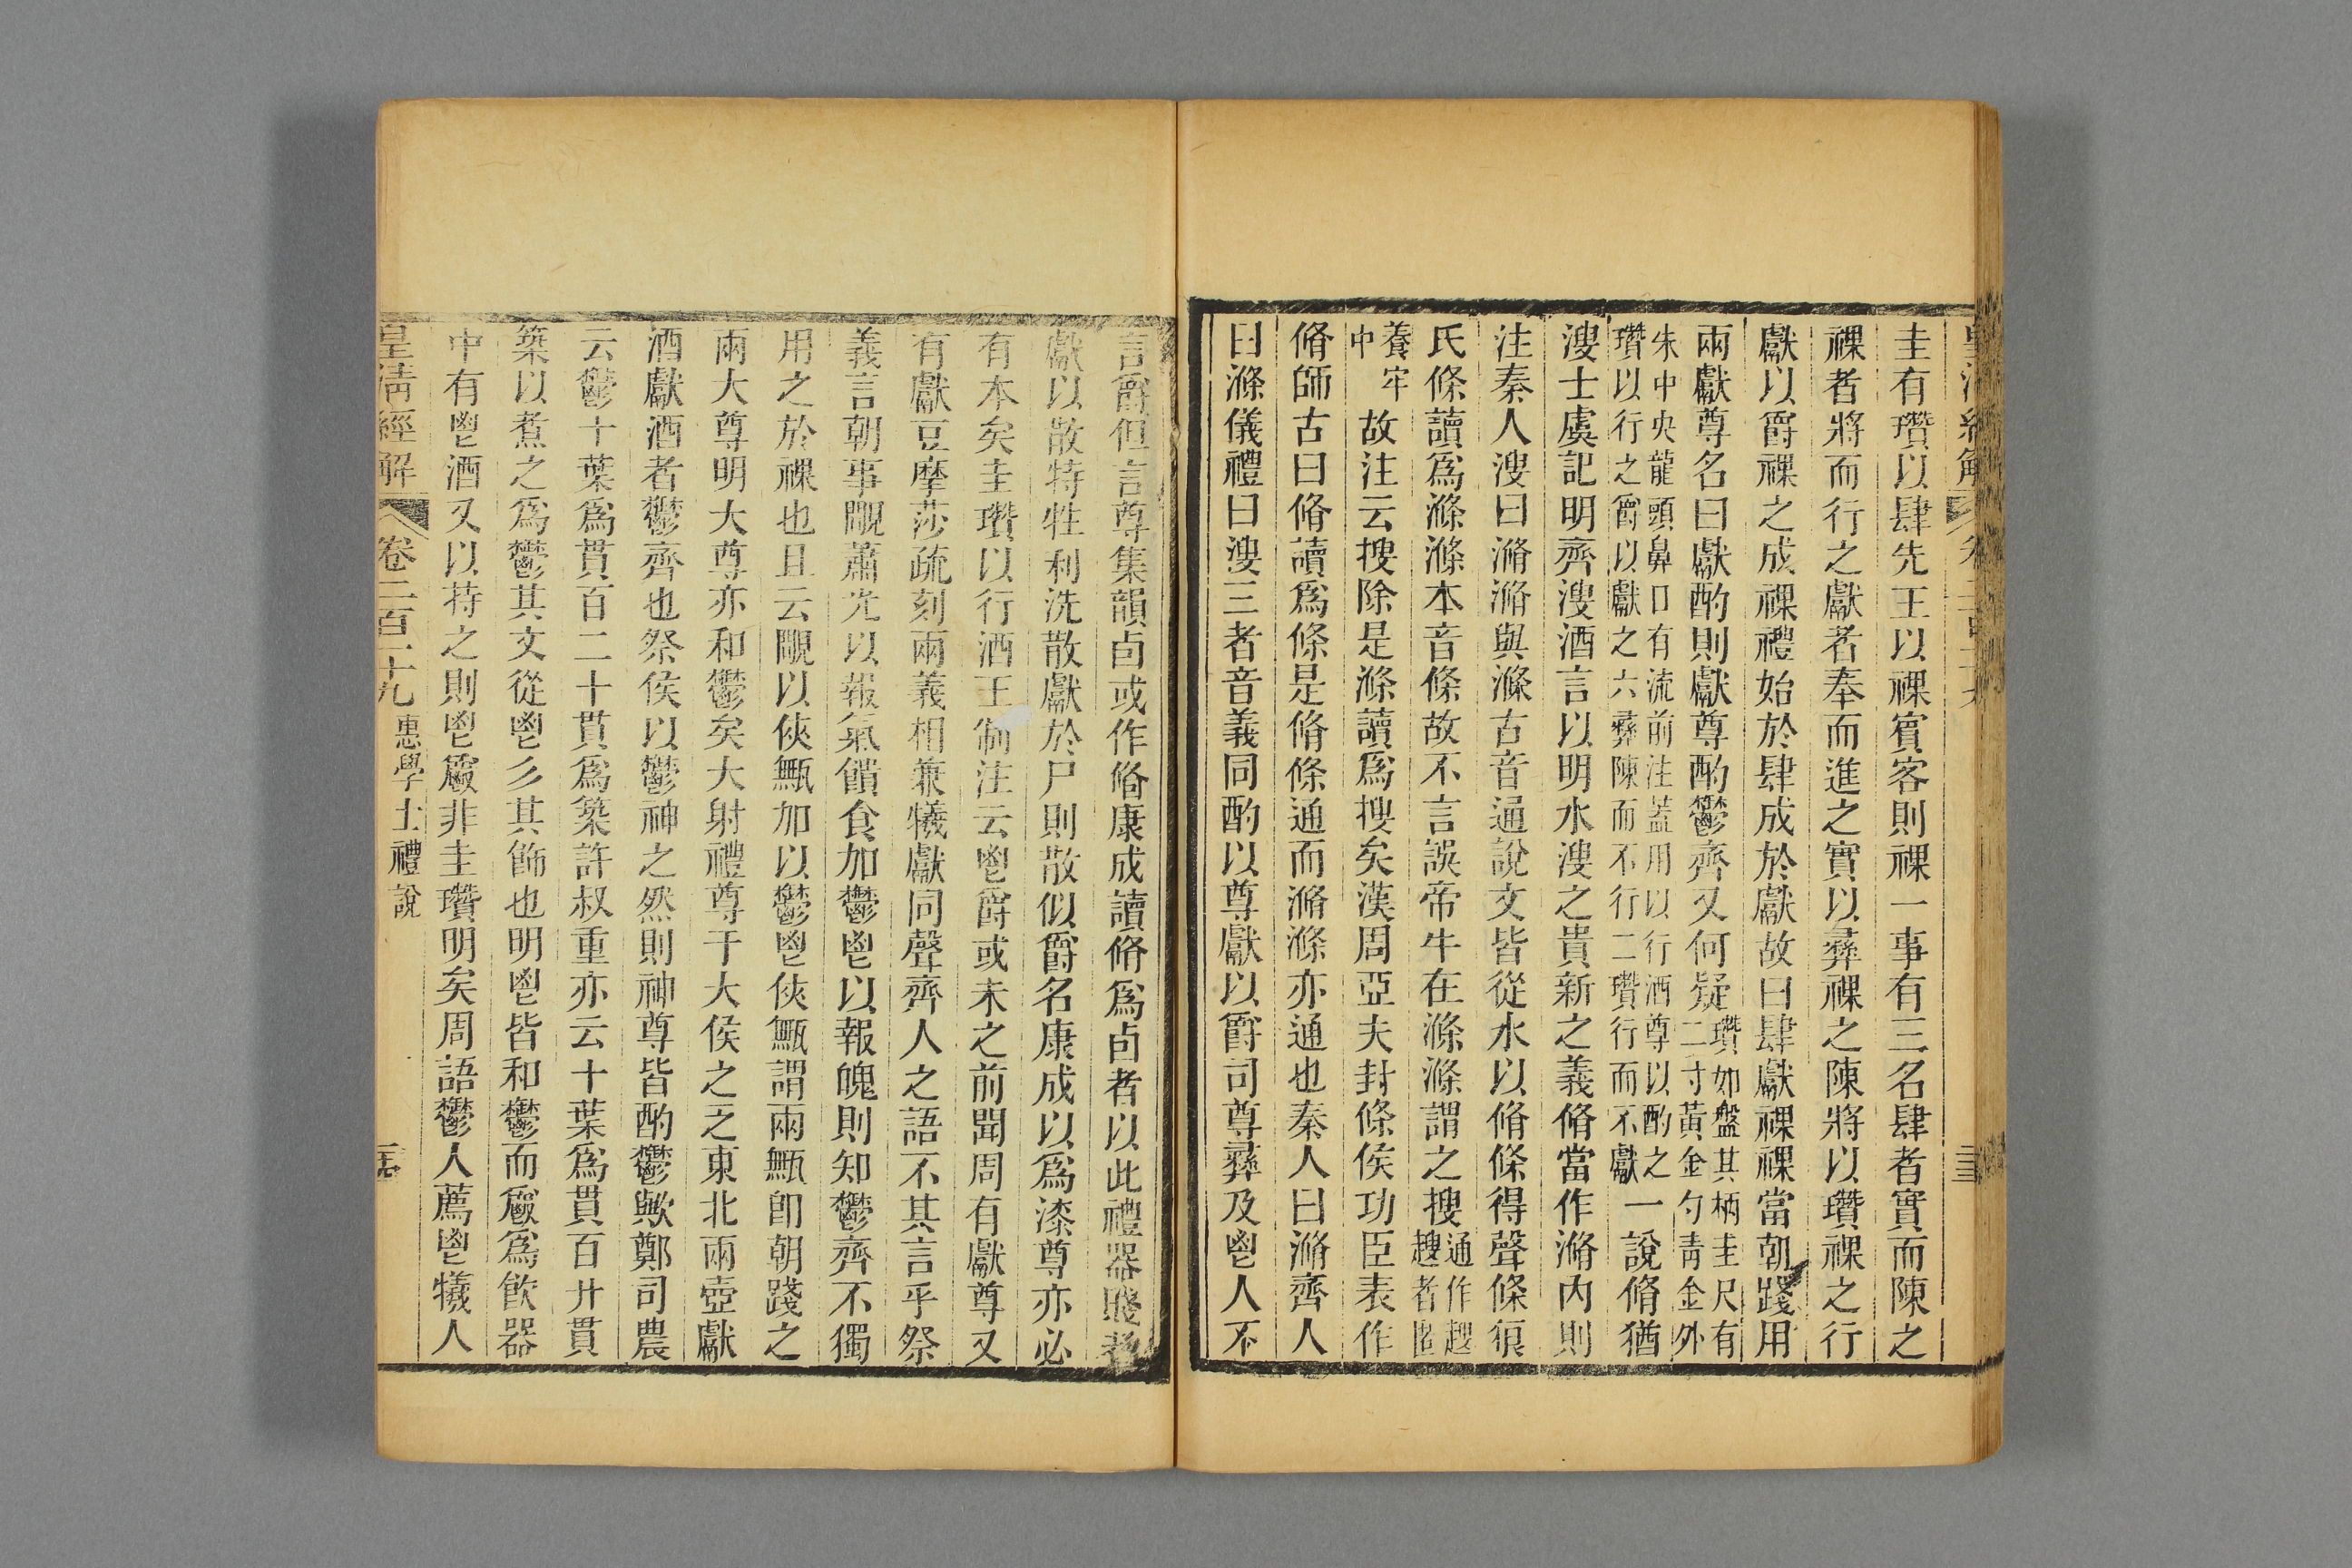 圭有瓚以肆先王以祼賓客則祼一事有三名肆者實而陳之
祼者將而行之獻者奉而進之實以彝祼之陳將以瓚祼之行
獻以爵祼之成祼禮始於肆成於獻故曰肆獻祼祼當朝踐用
兩獻尊名曰獻酌則獻尊酌鬱齊又何疑瓚如盤其柄圭尺有二寸黃金勺青金外
朱中央龍頭鼻口有流前注蓋用以行酒尊以酌之
瓚以行之爵以獻之六彝陳而不行二瓚行而不獻一說脩猶
溲士虞記明齊溲酒言以明水溲之貴新之義脩當作滫內則
注秦人溲曰滫滫與滌古音通說文皆從水以脩條得聲條狼
氏條讀為滌滌本音條故不言誤帝牛在滌滌謂之搜通作廋廋者
養牢中故注云搜除是滌讀為搜矣漢周亞夫封條侯功臣表作
脩師古曰脩讀為條是脩條通而滫滌亦通也秦人曰滫齊人
曰滌儀禮曰溲三者音義同酌以尊獻以爵司尊彝及鬯人不
言爵但言尊集韻卣或作脩康成讀脩為卣者以此禮器賤者
獻以散特牲利洗散獻於尸則散似爵名康成以為漆尊亦必
有本矣圭瓚以行酒王制注云鬯爵或未之前聞周有獻尊又
有獻豆摩莎疏刻兩義相兼犧獻同聲齊人之語不其言乎祭
義言朝事覵蕭光以報氣饋食加鬱鬯以報魄則知鬱齊不獨
用之於祼也且云覵以俠甒加以鬱鬯俠甒謂兩甒卽朝踐之
兩大尊明大尊亦和鬱矣大射禮尊于大侯之乏東北兩壺獻
酒獻酒者鬱齊也祭侯以鬱神之然則神尊皆酌鬱歟鄭司農
云鬱十葉為貫百二十貫為築許叔重亦云十葉為貫百廾貫
築以煮之為鬱其文從鬯彡其飾也明鬯皆和鬱而𩰪為飲器
中有鬯酒又以持之則鬯𩰪非圭瓚明矣周語鬱人薦鬯犧人
皇清經解 卷二百二十九 惠學士禮說